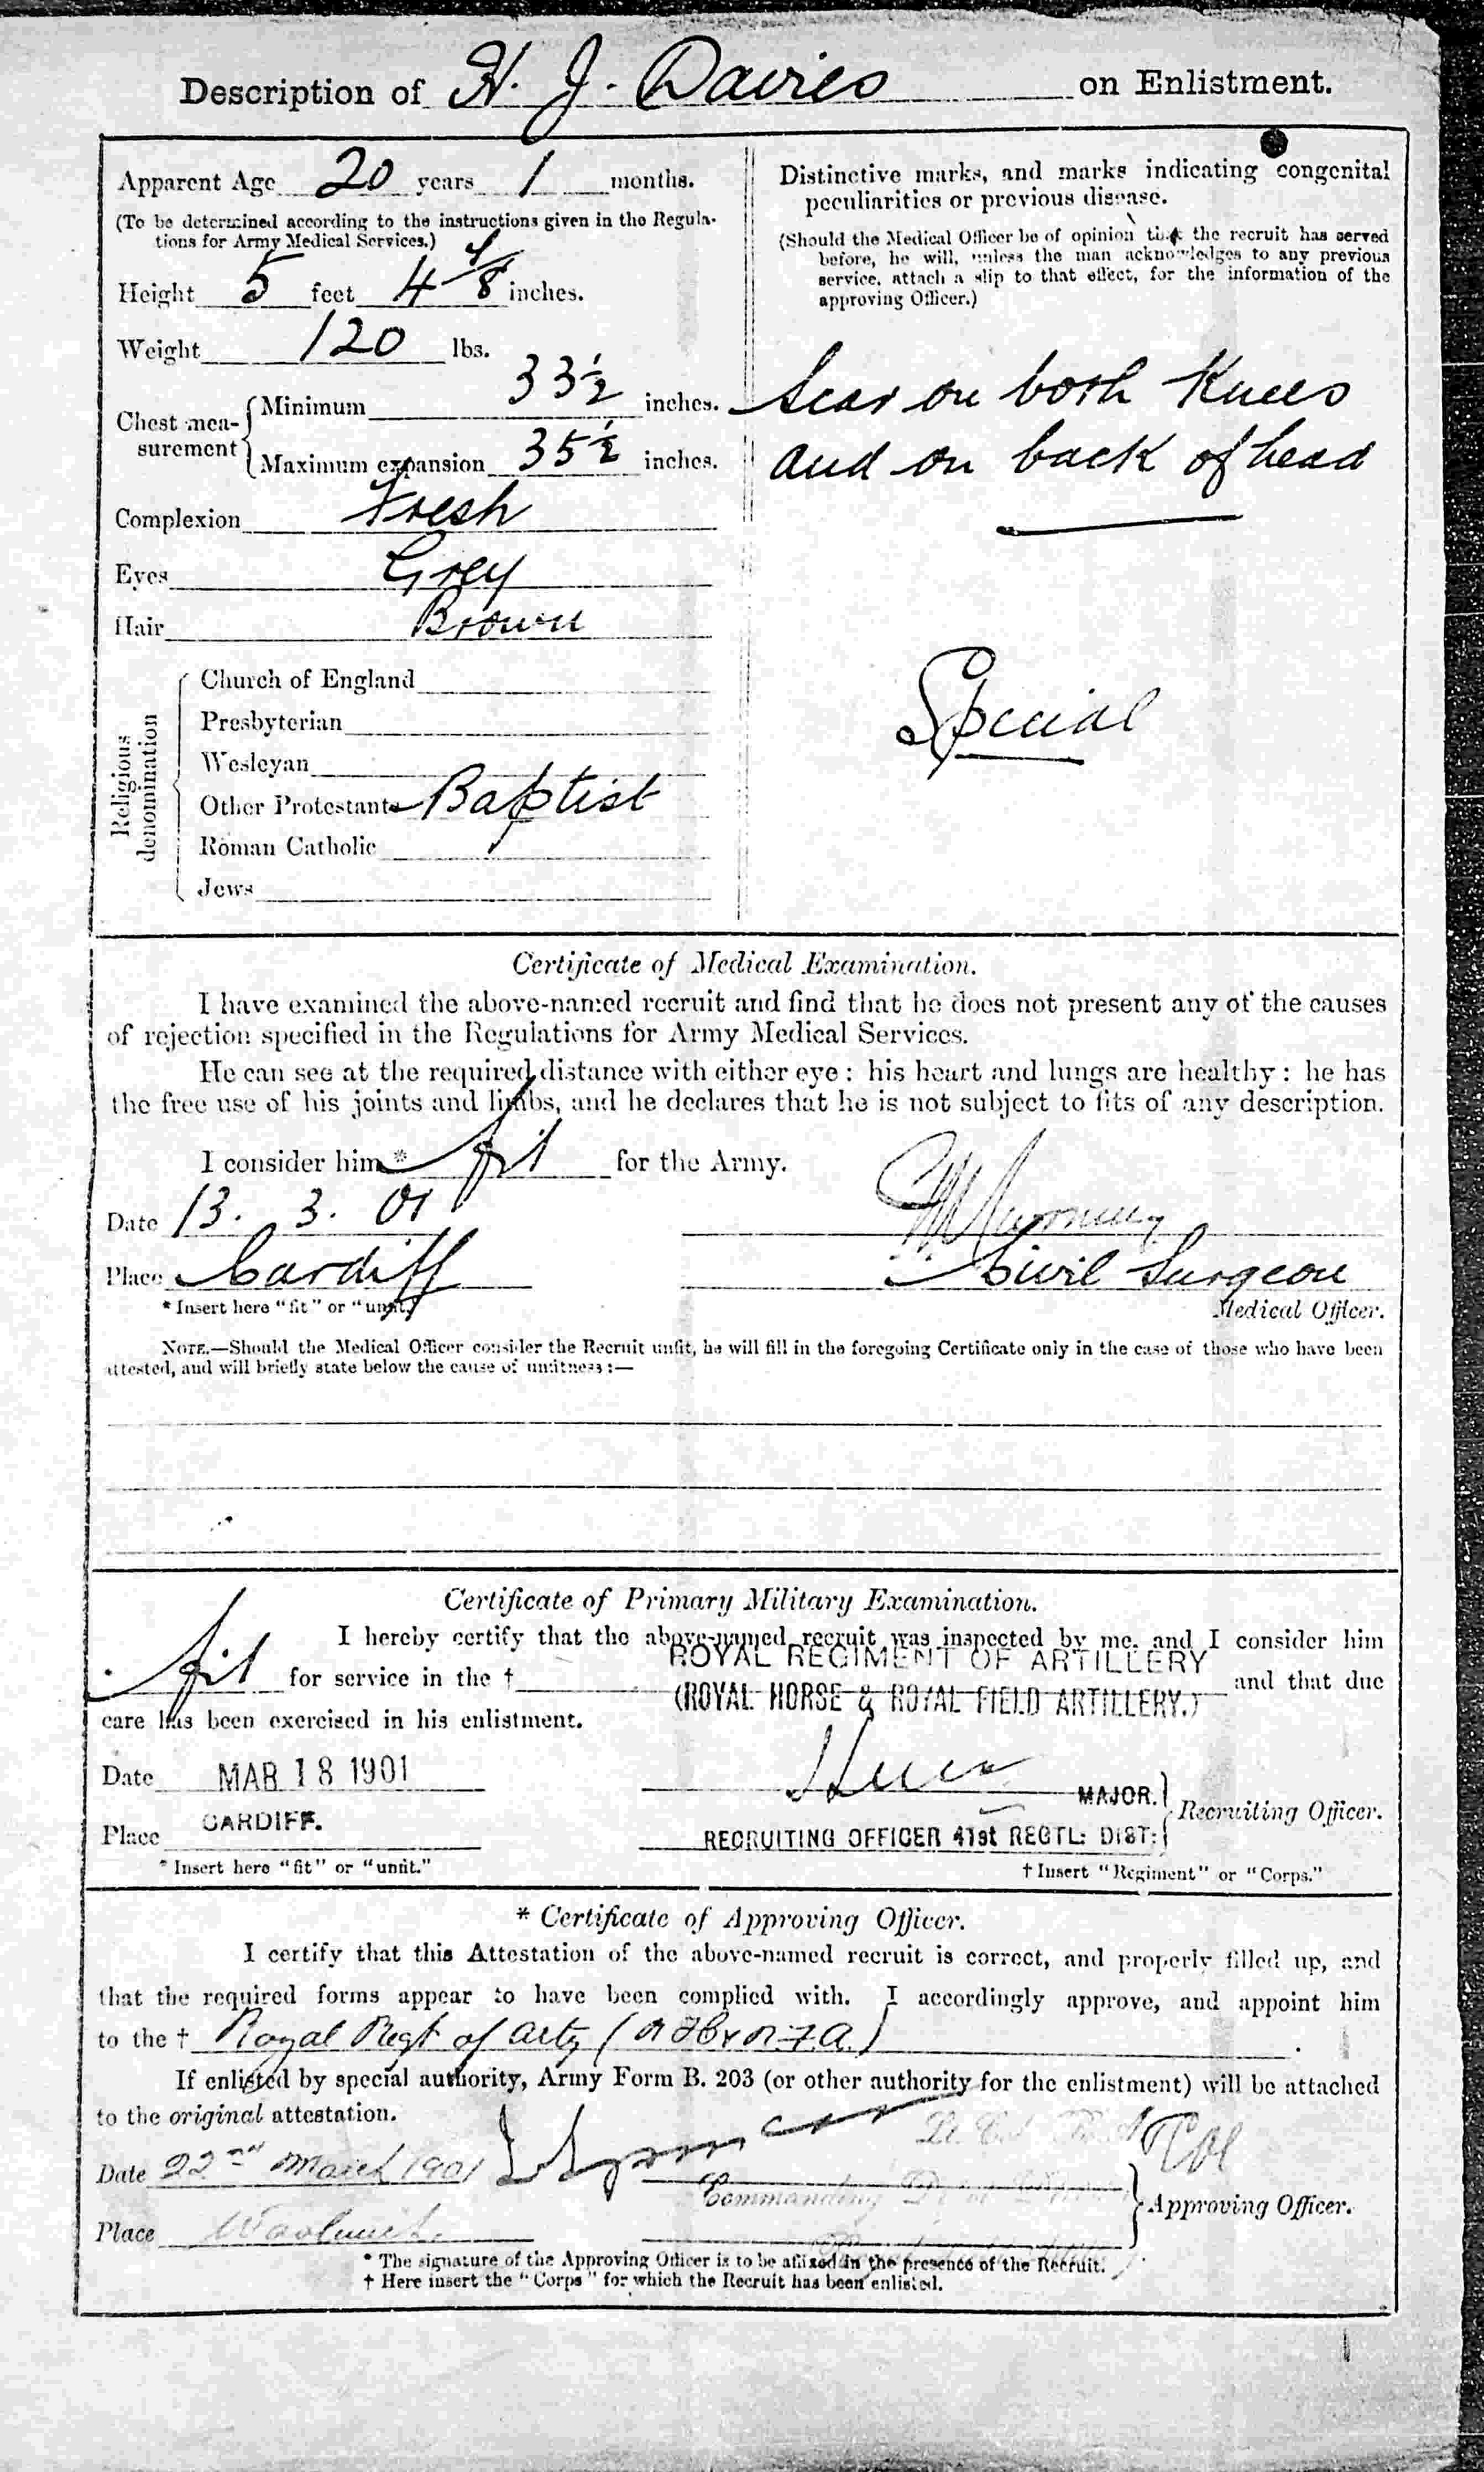 Description of H. J. Davies on Enlistment.
Apparent Age 20 years 1 months.
(To be determined according to the instructions given in the Regula-
tions for Army Medical Services.)
Height 5 feet 4 4/8 inches.
Weight 120 lbs.
Chest mea-
surement
Minimum 33½ inches.
Maximum expansion 35½ inches.
Complexion Fresh
Eyes Grey
Hair Brown
Religious
denomination
Church of England
Presbyterian
Wesleyan
Other Protestants Baptist
Roman Catholic
Jews
Distinctive marks, and marks indicating congenital
peculiarities or previous disease.
(Should the Medical Officer be of opinion that the recruit has served
before, he will, unless the man acknowledges to any previous
service, attach a slip to that effect, for the information of the
approving Officer.)
Scar on both Knees
and on back of head
Special
Certificate of Medical Examination.
I have examined the above-named recruit and find that he does not present any of the causes
of rejection specified in the Regulations for Army Medical Services.
He can see at the required distance with either eye: his heart and lungs are healthy: he has
the free use of his joints and limbs, and he declares that he is not subject to fits of any description.
I consider him * fit for the Army.
Date 13. 3. 01
Place Cardiff
Civil Surgeon
* Insert here "fit" or "unfit."
Medical Officer.
NOTE.—Should the Medical Officer consider the Recruit unfit, he will fill in the foregoing Certificate only in the case of those who have been
attested, and will briefly state below the cause of unfitness:—
Certificate of Primary Military Examination.
I hereby certify that the above-named recruit was inspected by me, and I consider him
fit for service in the † ROYAL REGIMENT OF ARTILLERY
(ROYAL HORSE & ROYAL FIELD ARTILLERY.) and that due
care has been exercised in his enlistment.
Date MAR 18 1901
MAJOR.
Place CARDIFF.
RECRUITING OFFICER 41st REGTL: DIST:
Recruiting Officer.
* Insert here "fit" or "unfit."
† Insert "Regiment" or "Corps."
* Certificate of Approving Officer.
I certify that this Attestation of the above-named recruit is correct, and properly filled up, and
that the required forms appear to have been complied with. I accordingly approve, and appoint him
to the † Royal Regt of Arty (R H & R.F.A.)
If enlisted by special authority, Army Form B. 203 (or other authority for the enlistment) will be attached
to the original attestation.
Date 22nd March 1901
Commanding
Approving Officer.
Place Woolwich
* The signature of the Approving Officer is to be affixed in the presence of the Recruit.
† Here insert the "Corps" for which the Recruit has been enlisted.